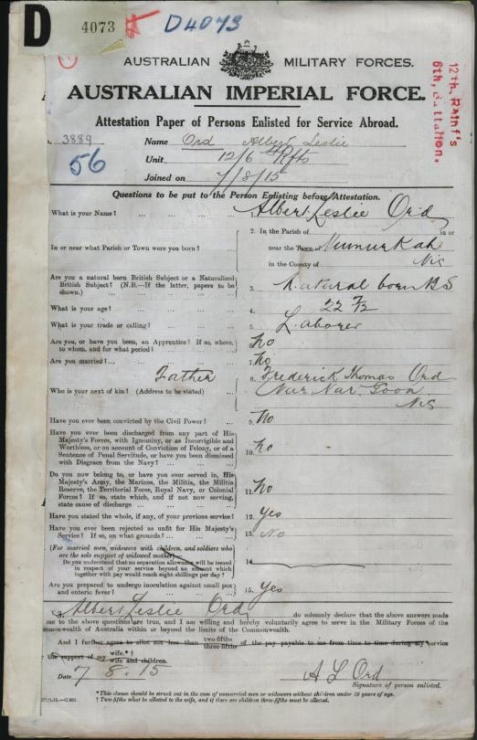 D
4073
D4073
AUSTRALIAN MILITARY FORCES.
AUSTRALIAN IMPERIAL FORCE.
12th Reinf's
6th Battalion.
Attestation Paper of Persons Enlisted for Service Abroad.
3889
56
Name Ord Albert Leslie
Unit 12/6 Rfts
Joined on 7/8/15
Questions to be put to the Person Enlisting before Attestation.
What is your Name? Albert Leslie Ord
In or near what Parish or Town were you born?
2. In the Parish of in or
near the Town of Numurkah
in the County of Vic
Are you a natural born British Subject or a Naturalized
British Subject? (N.B.—If the letter, papers to be
shown.)
3. Natural born BS
What is your age? 4. 22 7/12
What is your trade or calling? 5. Laborer
Are you, or have you been, an Apprentice? If so, where,
to whom, and for what period?
No
Are you married? 7. No
Father
Who is your next of kin? (Address to be stated)
8. Frederick Thomas Ord
Nar Nar Goon
Vic
Have you ever been convicted by the Civil Power? 9. No
Have you ever been discharged from any part of His
Majesty's Forces, with Ignominy, or as Incorrigible and
Worthless, or on account of Conviction of Felony, or of a
Sentence of Penal Servitude, or have you been dismissed
with Disgrace from the Navy?
10. No
Do you now belong to, or have you ever served in, His
Majesty's Army, the Marines, the Militia, the Militia
Reserve, the Territorial Force, Royal Navy, or Colonial
Forces? If so, state which, and if not now serving,
state cause of discharge
11. No
Have you stated the whole, if any, of your previous service? 12. Yes
Have you ever been rejected as unfit for His Majesty's
Service? If so, on what grounds?
13. No
(For married men, widowers with children, and soldiers who
are the sole support of widowed mother)
Do you understand that no separation allowance will be issued
in respect of your service beyond an amount which
together with pay would reach eight shillings per day?
14
Are you prepared to undergo inoculation against small pox
and enteric fever?
15. Yes
Albert Leslie Ord do solemnly declare that the above answers made
me to the above questions are true, and I am willing and hereby voluntarily agree to serve in the Military Forces of the
monwealth of Australia within or beyond the limits of the Commonwealth.
And I further agree to allot not less than two-fifths
three-fifths
of the pay payable to me from time to time during my service
the support of my wife.* †
wife and children.
Date 7 8. 15
A L Ord
Signature of person enlisted.
*This clause should be struck out in the case of unmarried men or widowers without children under 18 years of age.
† Two-fifths must be allotted to the wife, and if there are children three-fifths must be allotted.